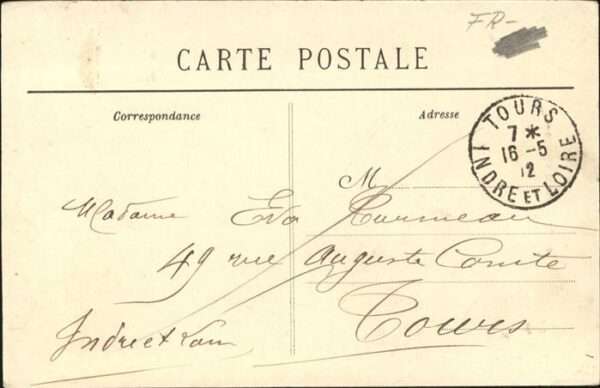 FR-
CARTE POSTALE
Correspondance
Adresse
TOURS
7 *
16 - 5
12
INDRE ET LOIRE
M
Madame Eva
49 rue Auguste Comte
Tours
Indre et Loire